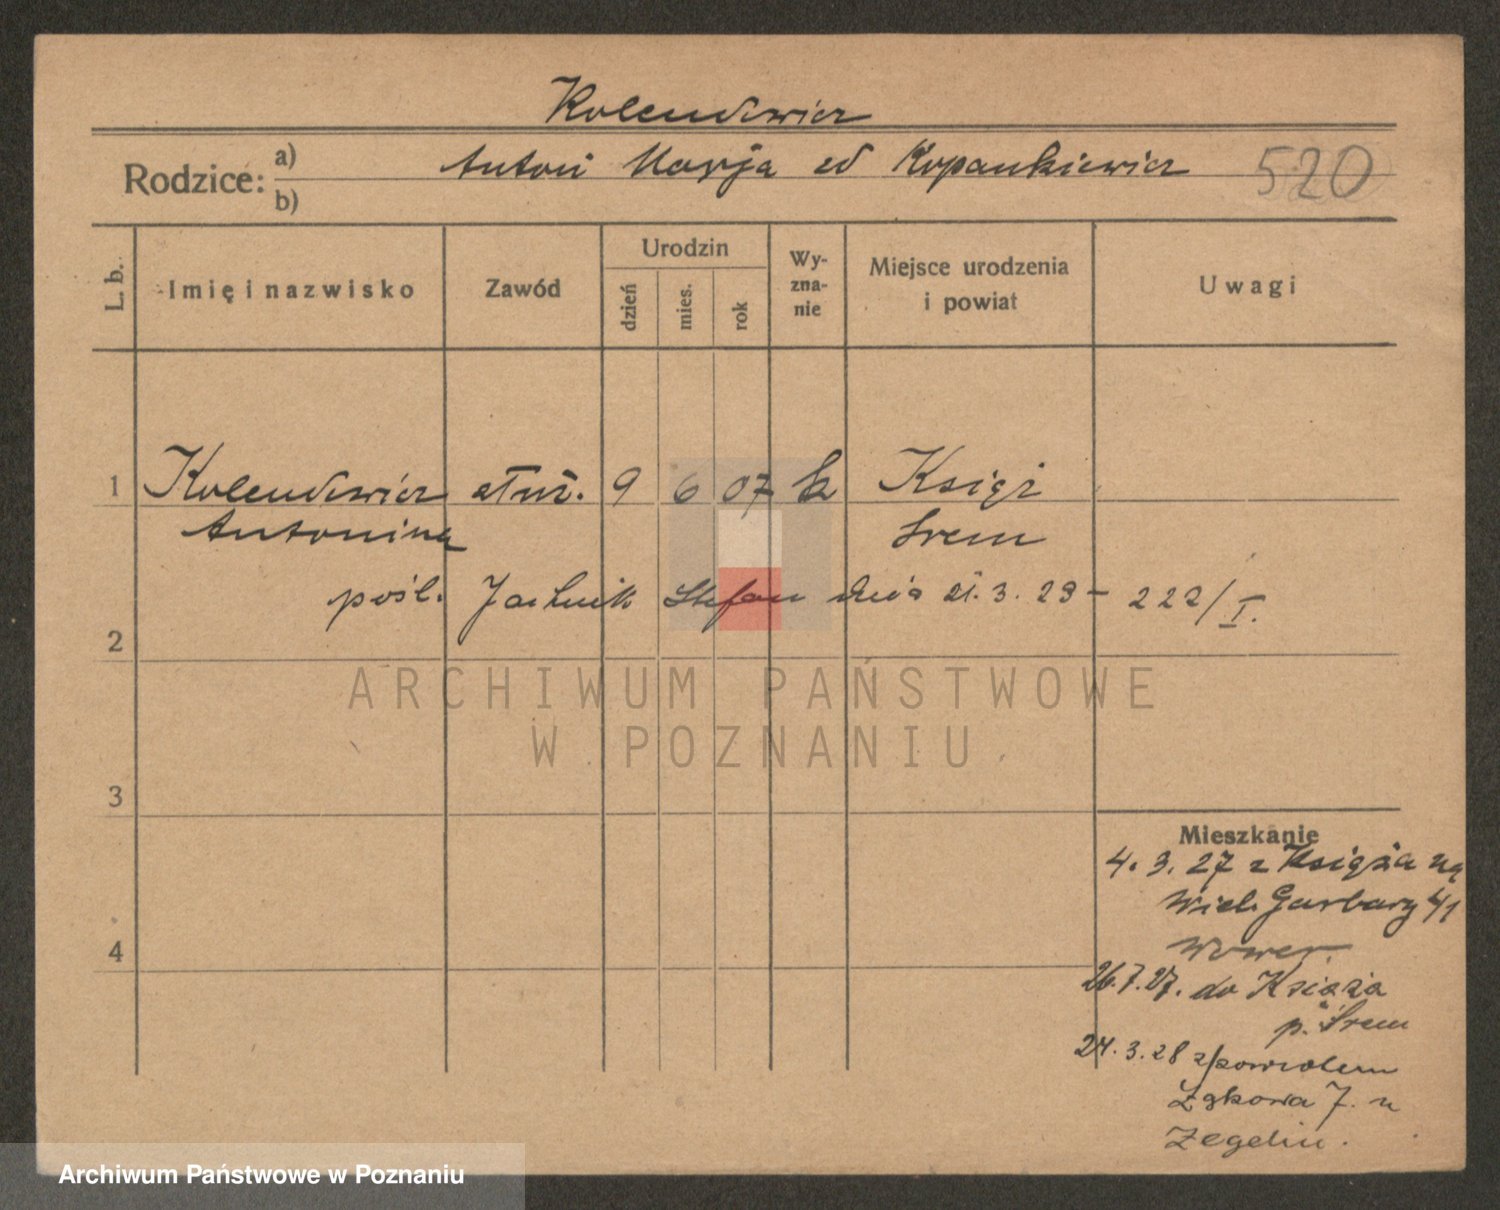 Kolendowicz
Rodzice: a) b) Antoni Marja zd Kopankiewicz 520
L. b. Imię i nazwisko Zawód Urodzin dzień mies. rok Wyznanie Miejsce urodzenia i powiat Uwagi
1 Kolendowicz służ. 9 6 07 k Książ
Antonina Śrem
pośl. Stefan dnia 21.3.29 – 222/I.
2
ARCHIWUM PAŃSTWOWE
W POZNANIU
3
Mieszkanie
4. 3. 27 z Książa na
Wiel. Garbary 41
4
26.7.27. do Książa
p. Śrem
24.3.28 z powrotem
Łąkowa 7. u
Archiwum Państwowe w Poznaniu